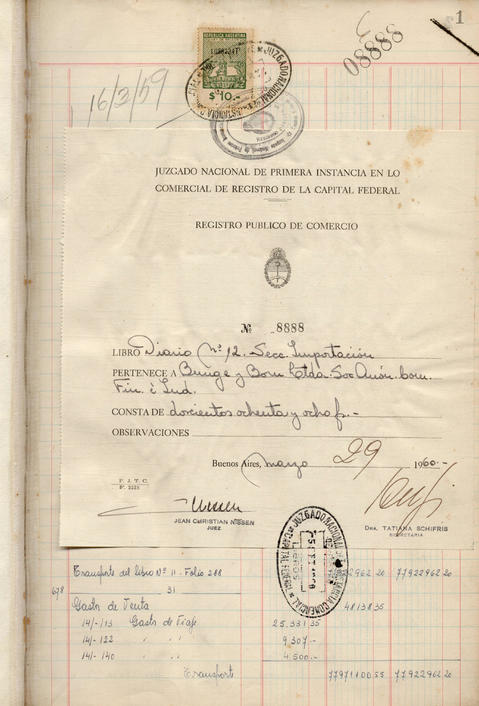 1
REPUBLICA ARGENTINA
$ 10.-
JUZGADO NACIONAL
3
08888
16/3/59
JUZGADO NACIONAL DE PRIMERA INSTANCIA EN LO
COMERCIAL DE REGISTRO DE LA CAPITAL FEDERAL
REGISTRO PUBLICO DE COMERCIO
№ 8888
LIBRO Diario nº 12. Secc. Importación
PERTENECE A Bunge y Born Ltda. Soc. Anón. Com.
Fin. é Ind.
CONSTA DE doscientos ochenta y ocho fs.-
OBSERVACIONES
Buenos Aires, marzo 29 1960.-
P. J. T. C.
F. 2028
JEAN CHRISTIAN NISSEN
JUEZ
DRA. TATIANA SCHIFRIS
SECRETARIA
JUZGADO NACIONAL
CAPITAL FEDERAL
Transporte del libro Nº 11 - Folio 288 77922962 20
31
678
Gastos de Venta 48138 35
14/-/13 Gastos de Viaje 25.331 35
14/-122 " " 9.307 -
14/- 140 " " 4.500 -
Transporte 77971100 55 77922962 20